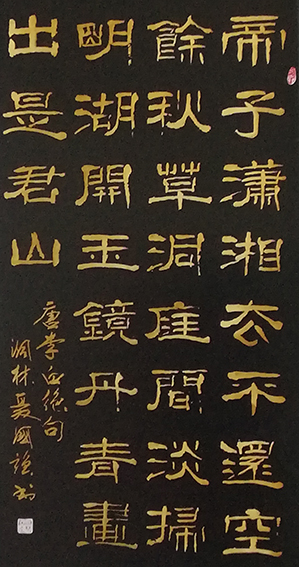 帝子瀟湘去不還空
餘秋草洞庭間淡掃
明湖開玉鏡丹青畫
出是君山
唐李白絕句
林聶國強書